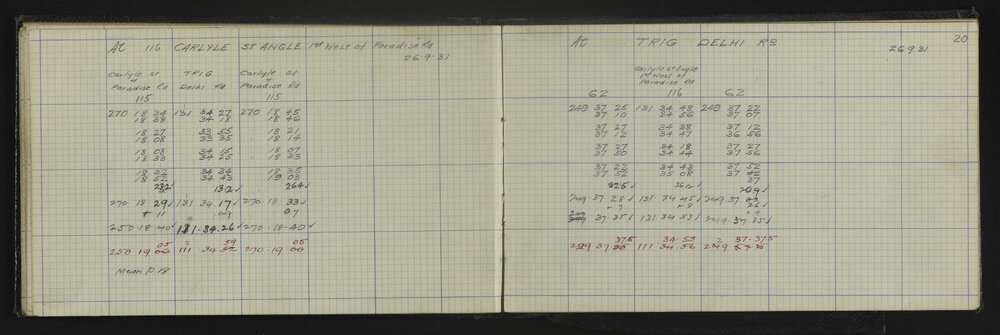 At 116 CARLYLE ST ANGLE 1st West of Paradise Rd
26.9.31
Carlyle St TRIG Carlyle St
& &
Paradise Rd Delhi Rd Paradise Rd
115 115
270 18 34 131 34 27 270 18 45
18 38 34 18 18 46
18 27 33 55 18 21
18 08 33 35 18 14
18 08 34 15 18 07
18 33 34 25 18 33
18 32 34 34 18 35
18 52 34 43 19 03
232 132 264
270 18 29 131 34 17 270 18 33
+ 11 09 07
250 18 40 131.34.26 270.18.40
05 59 05
250 19 00 111 34 270 19 00
Mean P 18
At TRIG DELHI RD
20
26.9.31
Carlyle st Angle
1st West of
Paradise Rd
62 116 62
249 37 25 131 34 48 249 37 22
37 10 34 56 37 07
37 27 34 38 37 12
37 12 34 47 36 56
37 27 34 18 37 27
37 50 34 44 37 56
37 27 34 43 37 22
37 52 35 08 37 42
37
225 362 209
249.37.28 131 34 45 249 37
26
+ 7 + 8 + 9
37 35 131 34 53 249 37 35
37.5 34.59 37.37.5
249 37 111 34.52 249